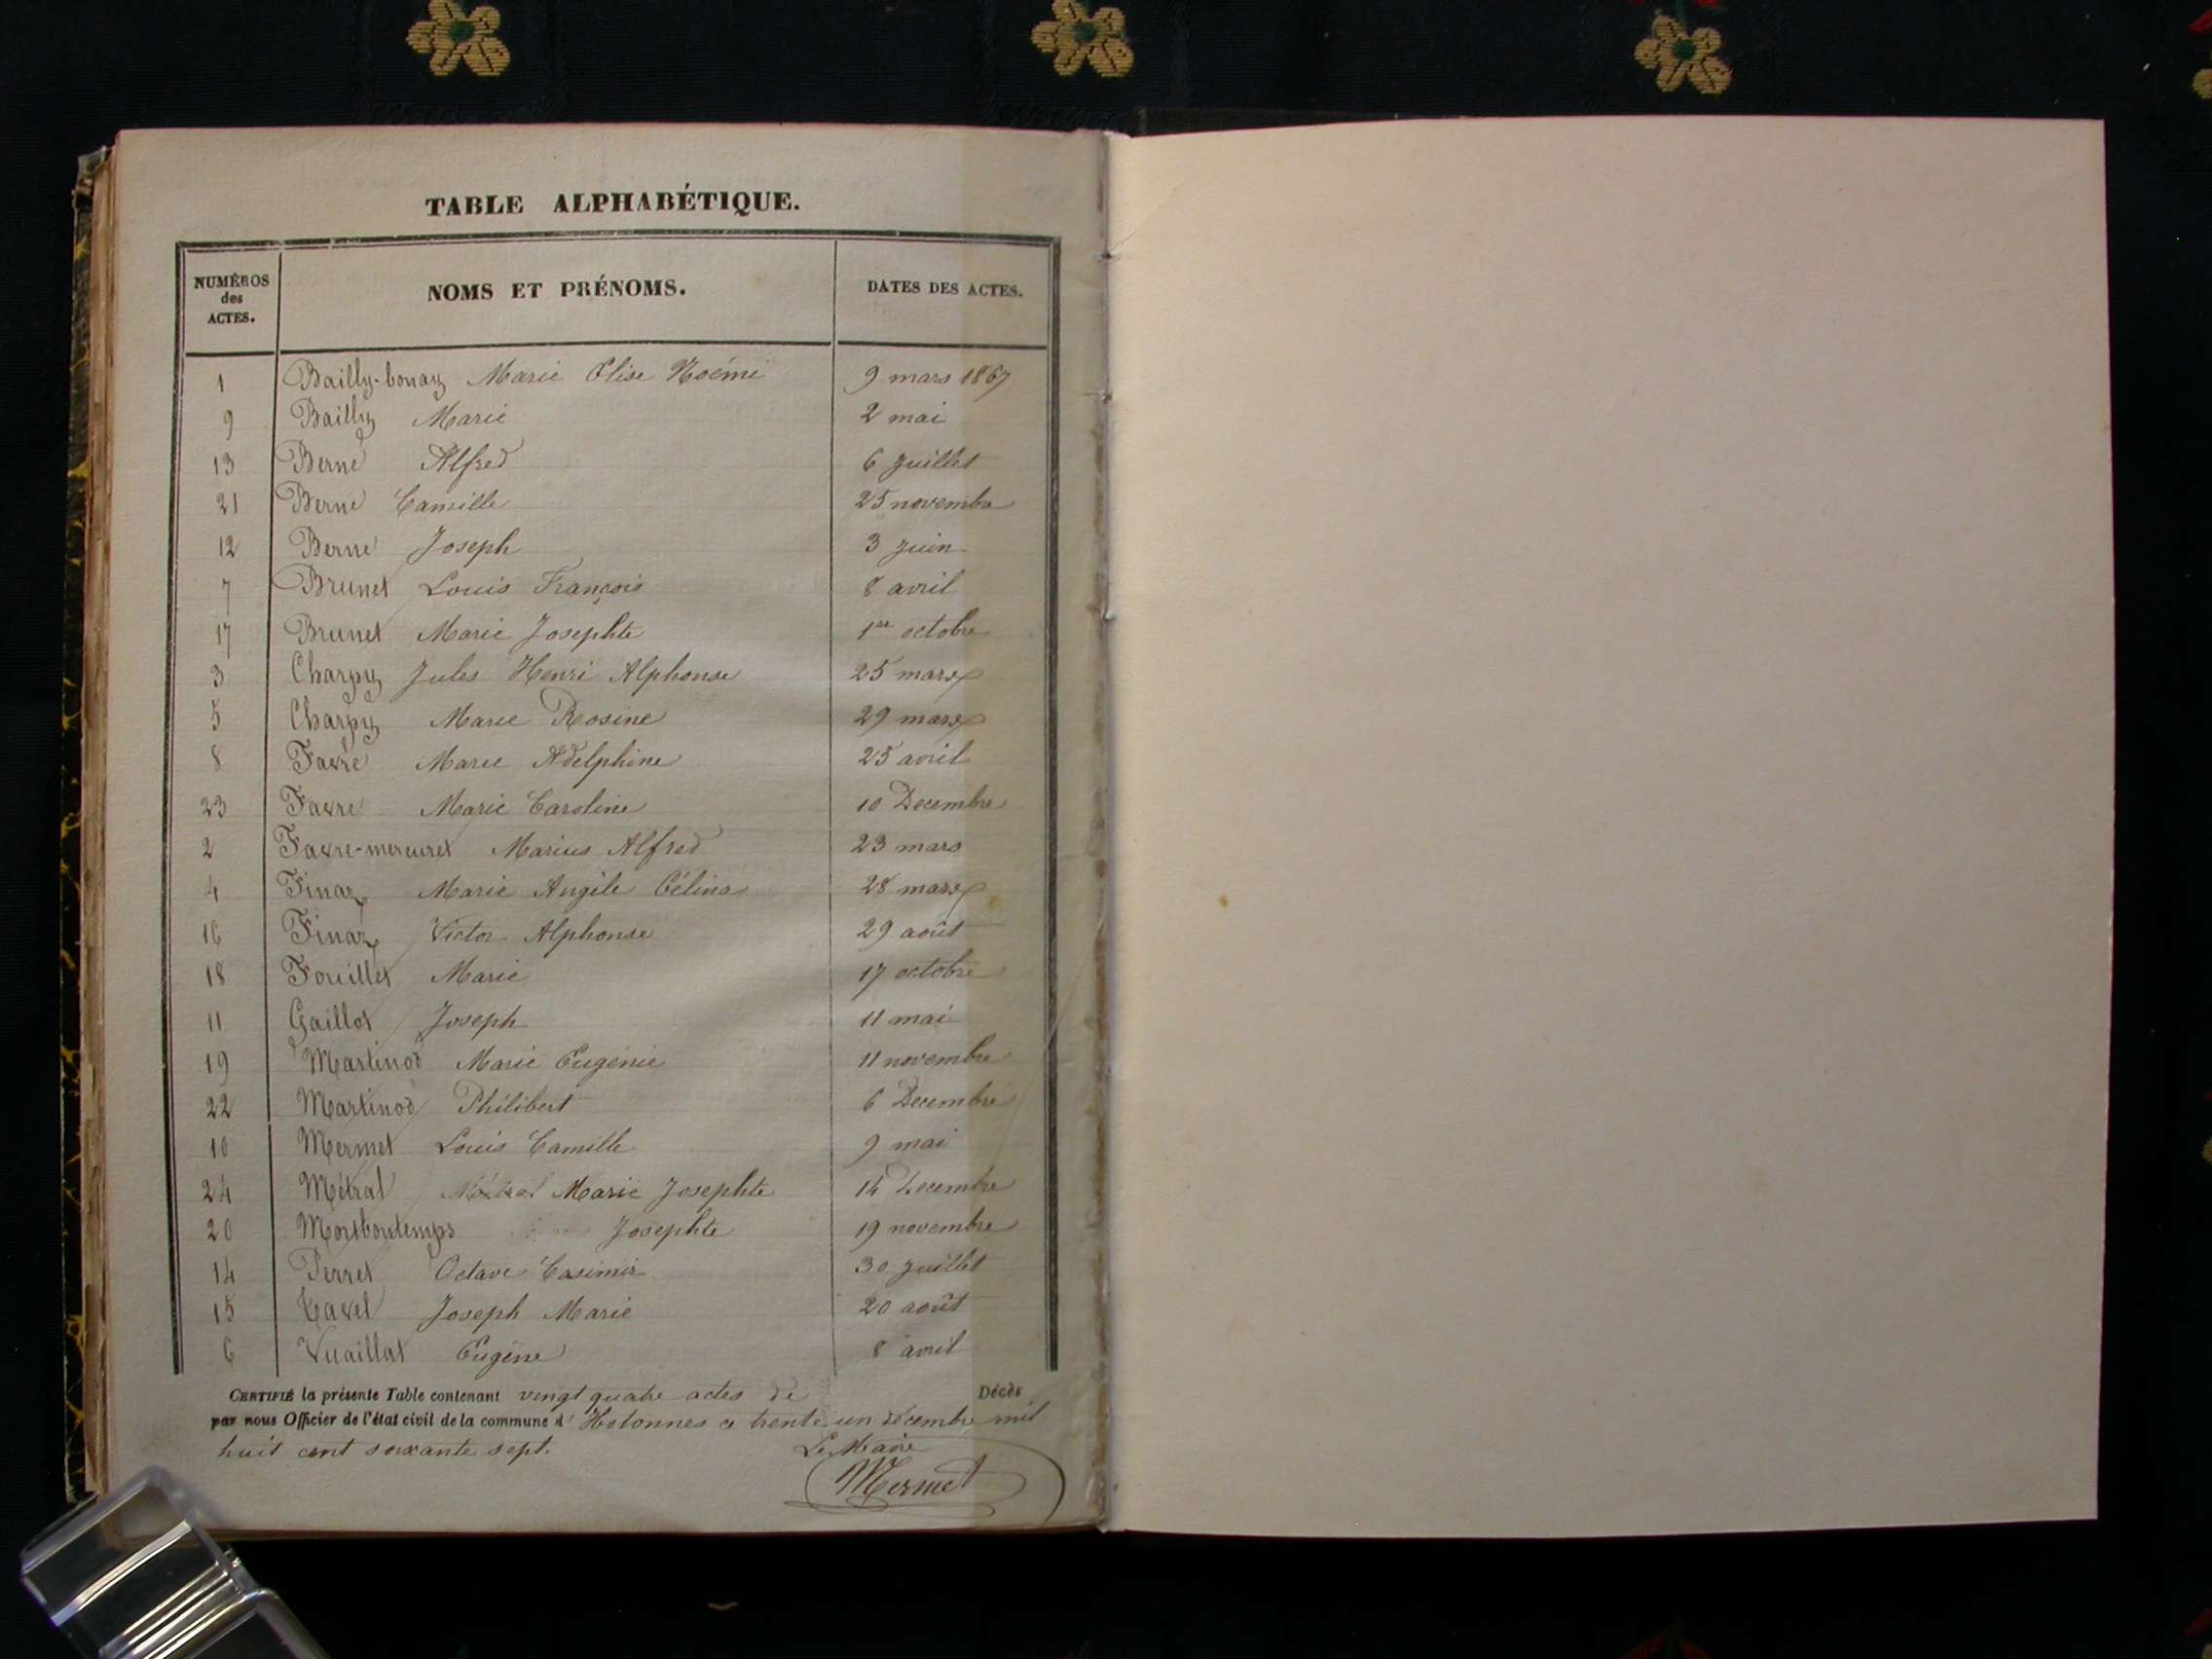 TABLE ALPHABÉTIQUE.
NUMÉROS des ACTES. NOMS ET PRÉNOMS. DATES DES ACTES.
1 Bailly-bonaz Marie Elise Noémi 9 mars 1867
9 Bailly Marie 2 mai
13 Berne Alfred 6 Juillet
21 Berne Camille 25 novembre
12 Berne Joseph 3 Juin
7 Brunet Louis François 8 avril
17 Brunet Marie Josephte 1er octobre
3 Charpy Jules Henri Alphonse 25 mars
5 Charpy Marie Rosine 29 mars
8 Favre Marie Adelphine 25 avril
23 Favre Marie Caroline 10 Decembre
2 Favre-mercuret Marius Alfred 23 mars
4 Finaz Marie Angèle Célina 28 mars
16 Finaz Victor Alphonse 29 août
18 Fouillet Marie 17 octobre
11 Gaillot Joseph 11 mai
19 Martinod Marie Eugénie 11 novembre
22 Martinod Philibert 6 Decembre
10 Mermet Louis Camille 9 mai
24 Métral Marie Josephte 14 Decembre
20 Montbontemps Josephte 19 novembre
14 Perret Octave Casimir 30 Juillet
15 Tavel Joseph Marie 20 août
6 Vuaillat Eugène 8 avril
CERTIFIÉ la présente Table contenant vingt quatre actes de Décès
par nous Officier de l'état civil de la commune d' Hotonnes ce trente un décembre mil
huit cent soixante sept. Le Maire
Mermet